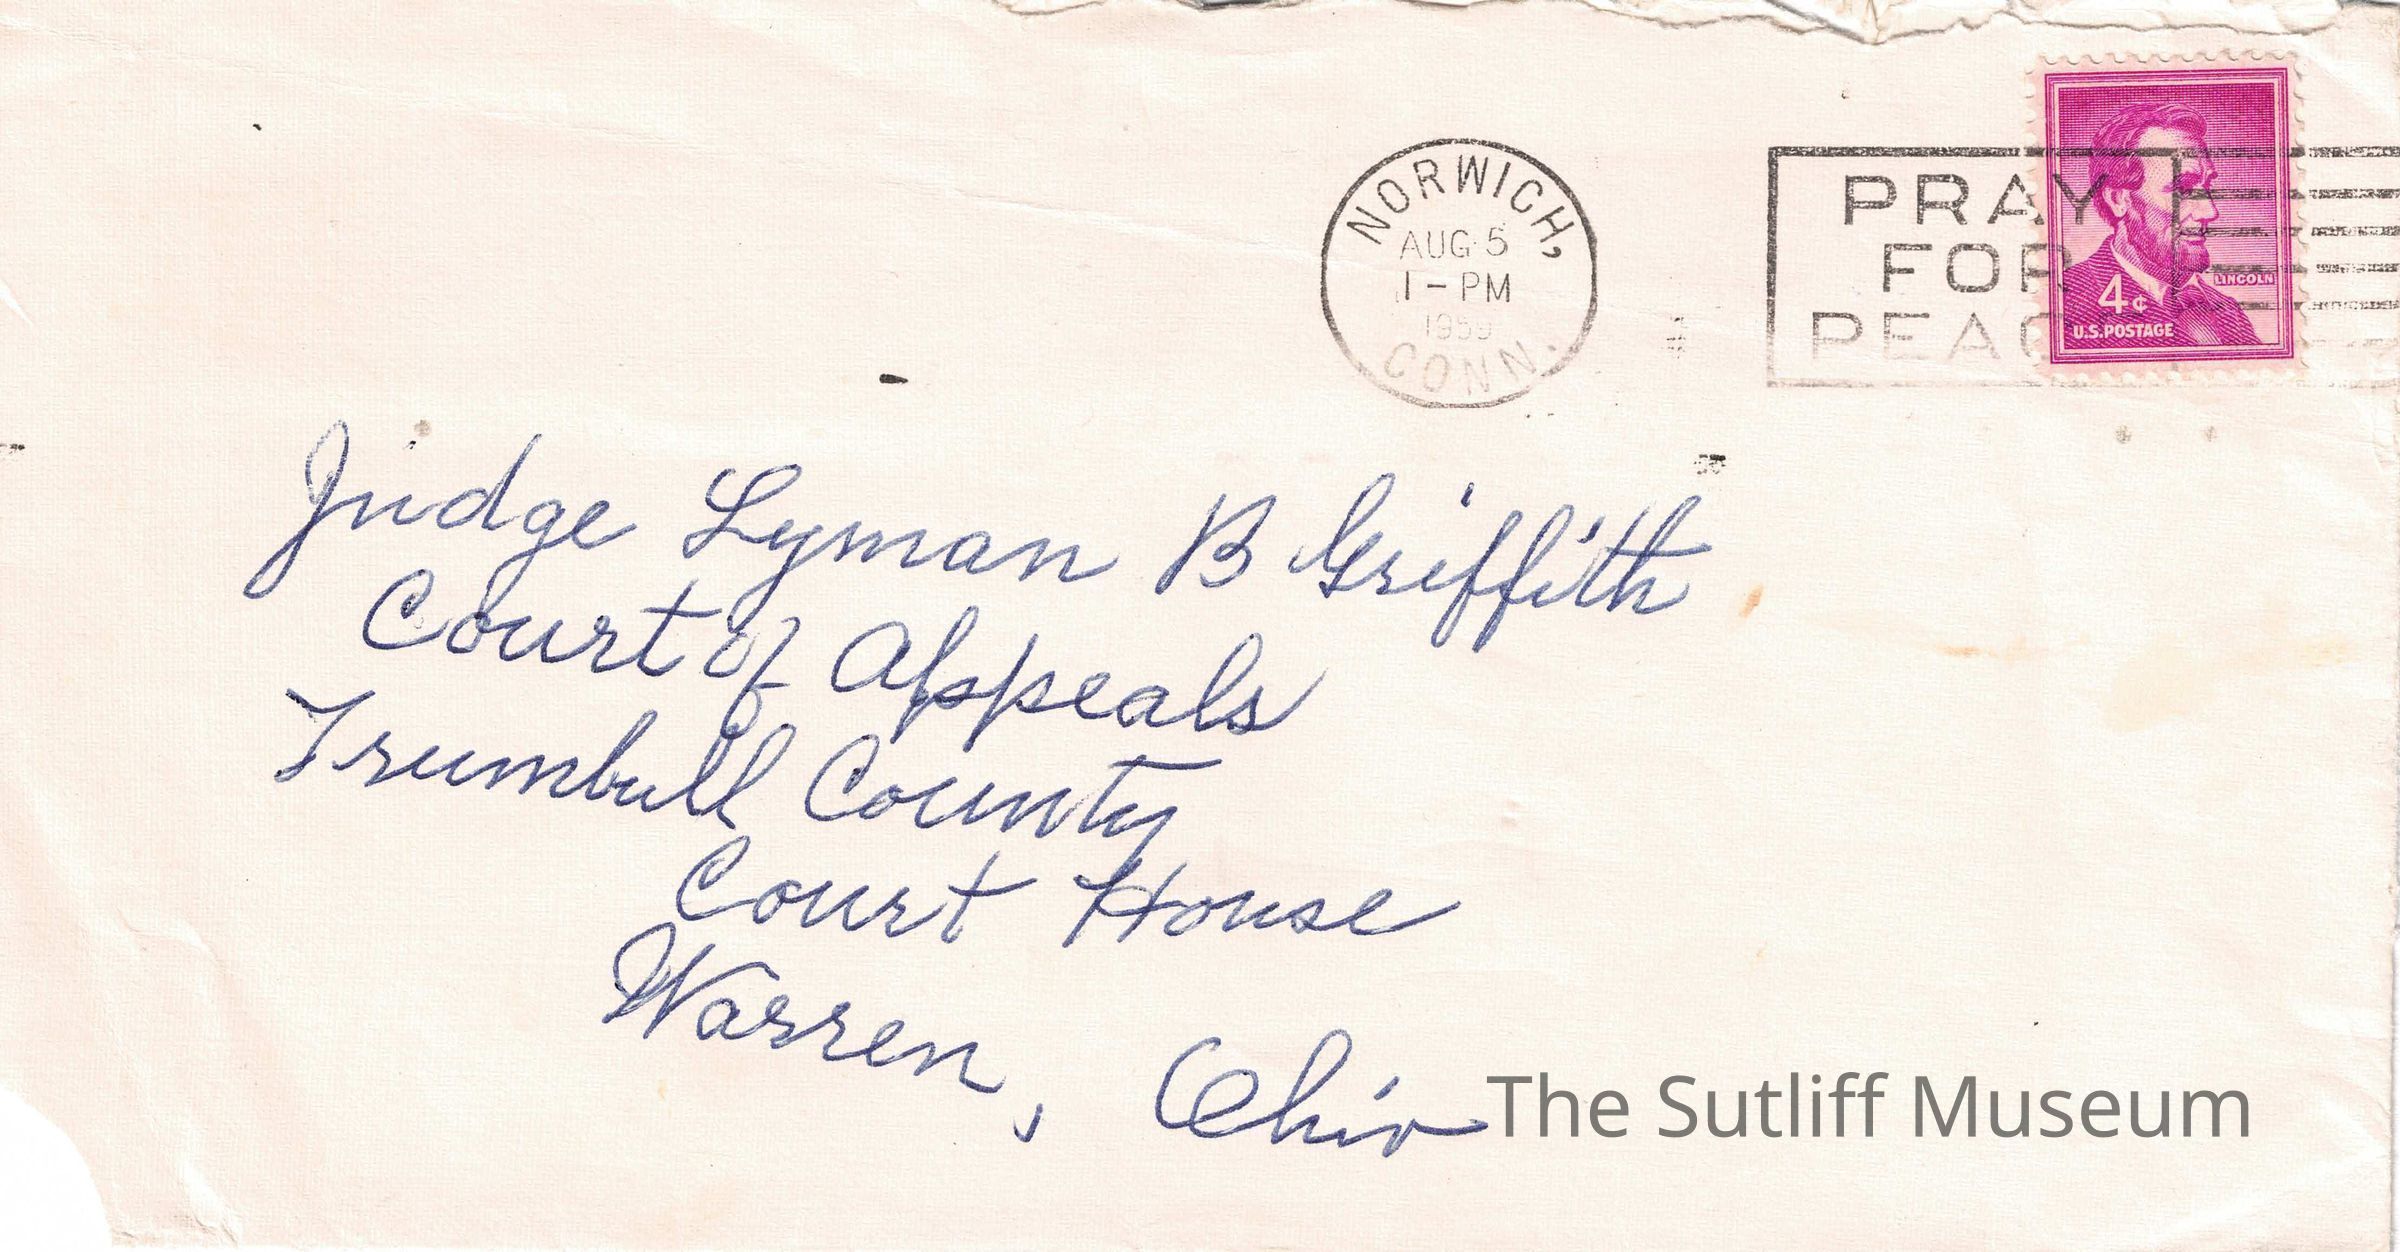 NORWICH,
AUG 5
1-PM
1959
CONN.
PRAY
FOR
PEACE
LINCOLN
4¢
U.S.POSTAGE
Judge Lyman B Griffith
Court of Appeals
Trumbull County
Court House
Warren, Ohio
The Sutliff Museum